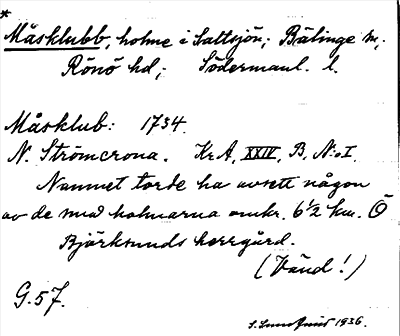 *
Måsklubb, holme i Saltsjön; Bälinge sn,
Rönö hd; Södermanl. l.
Måsklub: 1734.
N. Strömcrona. Kr.A, XXIV, B. N:o I.
Namnet torde ha avsett någon
av de små holmarna omkr. 6½ km. Ö
Björksunds herrgård.
(Vänd!)
G. 57.
S. 1936.